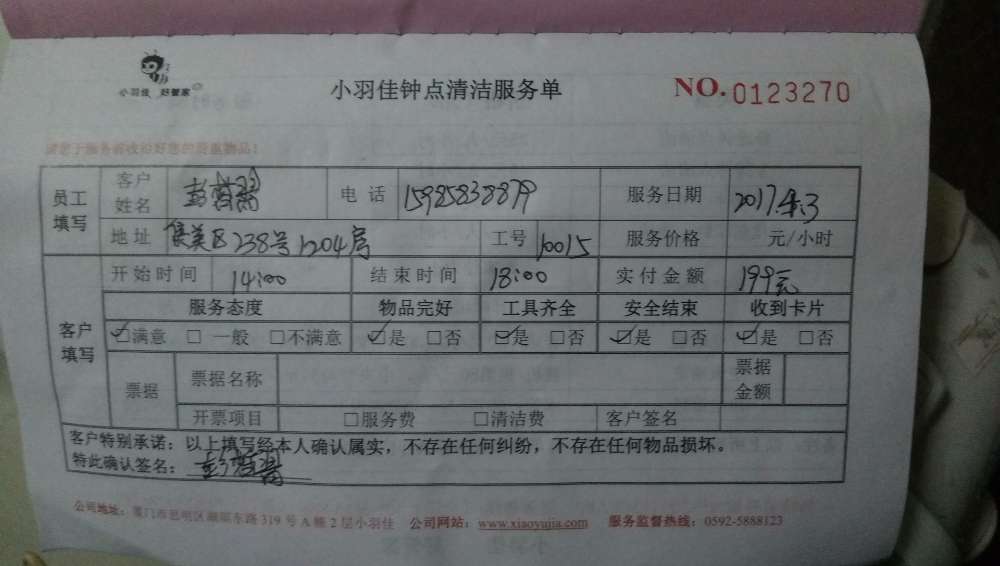 小羽佳 好管家
小羽佳钟点清洁服务单
NO. 0123270
请您于服务前收拾好您的贵重物品！
员工填写 客户姓名 彭 电话 15985838879 服务日期 2017.4.3
地址 集美区238号1204房 工号 10015 服务价格 元/小时
客户填写 开始时间 14:00 结束时间 18:00 实付金额 199元
服务态度 物品完好 工具齐全 安全结束 收到卡片
☑满意 □一般 □不满意 ☑是 □否 ☑是 □否 ☑是 □否 ☑是 □否
票据 票据名称 票据金额
开票项目 □服务费 □清洁费 客户签名
客户特别承诺：以上填写经本人确认属实，不存在任何纠纷，不存在任何物品损坏。
特此确认签名：彭
公司地址：厦门市思明区湖滨东路319号A幢2层小羽佳 公司网站：www.xiaoyujia.com 服务监督热线：0592-5888123